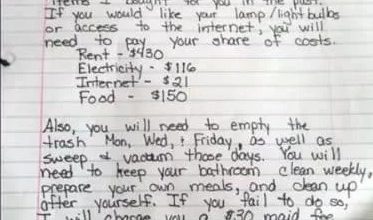 items I bought for you in the past.
If you would like your lamp/light bulbs
or access to the internet, you will
need to pay your share of costs.
Rent - $430
Electricity - $116
Internet - $21
Food - $150
Also, you will need to empty the
trash Mon, Wed, & Friday, as well as
sweep & vacuum those days. You will
need to keep your bathroom clean weekly,
prepare your own meals, and clean up
after yourself. If you fail to do so,
I will charge you a $30 maid fee